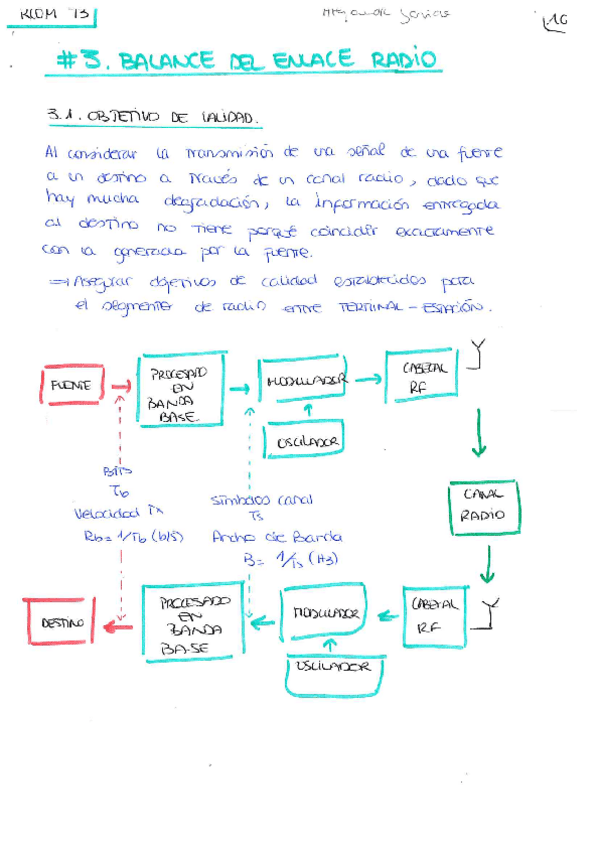 RCOM T3
16
#3. BALANCE DEL ENLACE RADIO
3.1. OBJETIVO DE CALIDAD.
Al considerar la transmisión de una señal de una fuente
a un destino a través de un canal radio, dado que
hay mucha degradación, la información entregada
al destino no tiene porqué coincidir exactamente
con la generada por la fuente.
⇒ Asegurar objetivos de calidad establecidos para
el segmento de radio entre TERMINAL - ESTACIÓN.
FUENTE
PROCESADO
EN
BANDA
BASE
MODULADOR
CABEZAL
RF
OSCILADOR
BITS
Tb
Velocidad Tx
Rb = 1/Tb (b/s)
símbolos canal
Ts
Ancho de Banda
B = 1/Ts (Hz)
CANAL
RADIO
DESTINO
PROCESADO
EN
BANDA
BASE
MODULADOR
CABEZAL
RF
OSCILADOR